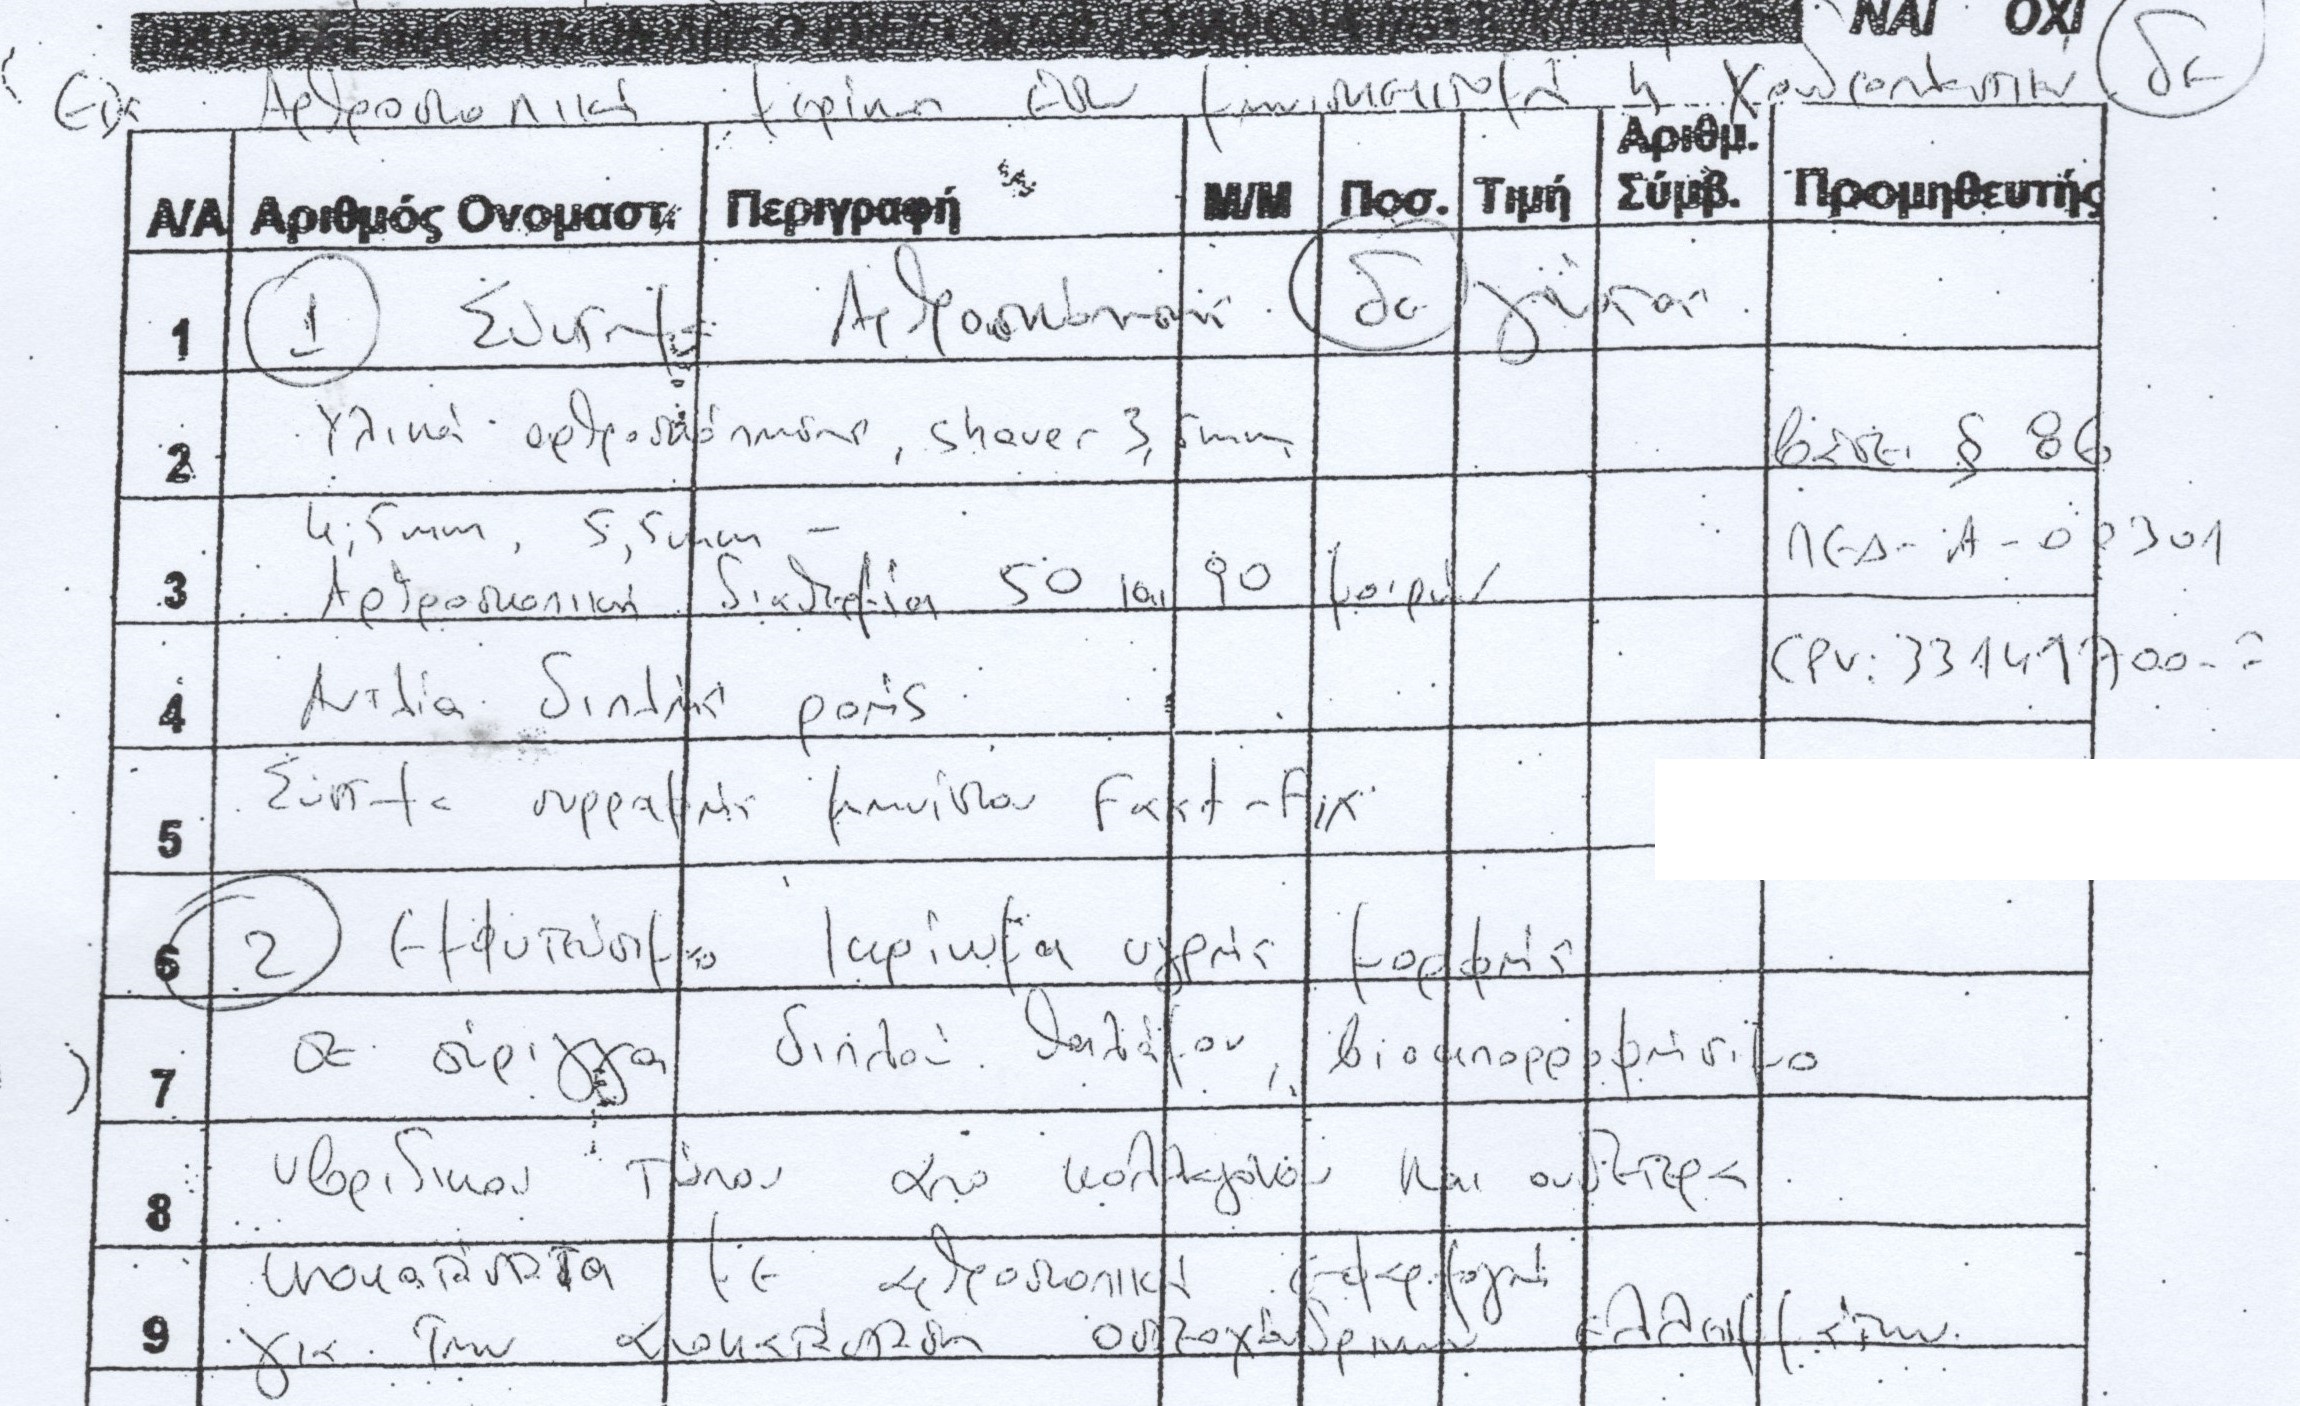 ΝΑΙ ΟΧΙ
δε
Αρθροσκοπική μερική ή
Α/Α Αριθμός Ονομαστ. Περιγραφή Μ/Μ Ποσ. Τιμή Αριθμ. Σύμβ. Προμηθευτής
1 1 Σύστημα Αρθροσκόπησης δε γόνατος
2 Υλικά αρθροσκόπησης, shaver 3,5mm, βάσει § 86
4,5mm, 5,5mm - ΠΕΔ-Α-00301
3 Αρθροσκοπική διαθερμία 50 και 90 μοιρών
CPV: 33141700-7
4 Αντλία διπλής ροής
5 Σύστημα συρραφής μηνίσκου Fast-Fix
6 2 Εμφυτεύσιμο ικρίωμα υγρής μορφής
7 σε σύριγγα διπλού θαλάμου, βιοαπορροφήσιμο
8 υβριδικού τύπου από κολλαγόνο και ουδέτερα
υποκατάστατα με αρθροσκοπική εφαρμογή
9 για την αποκατάσταση οστεοχόνδρινων ελλειμμάτων